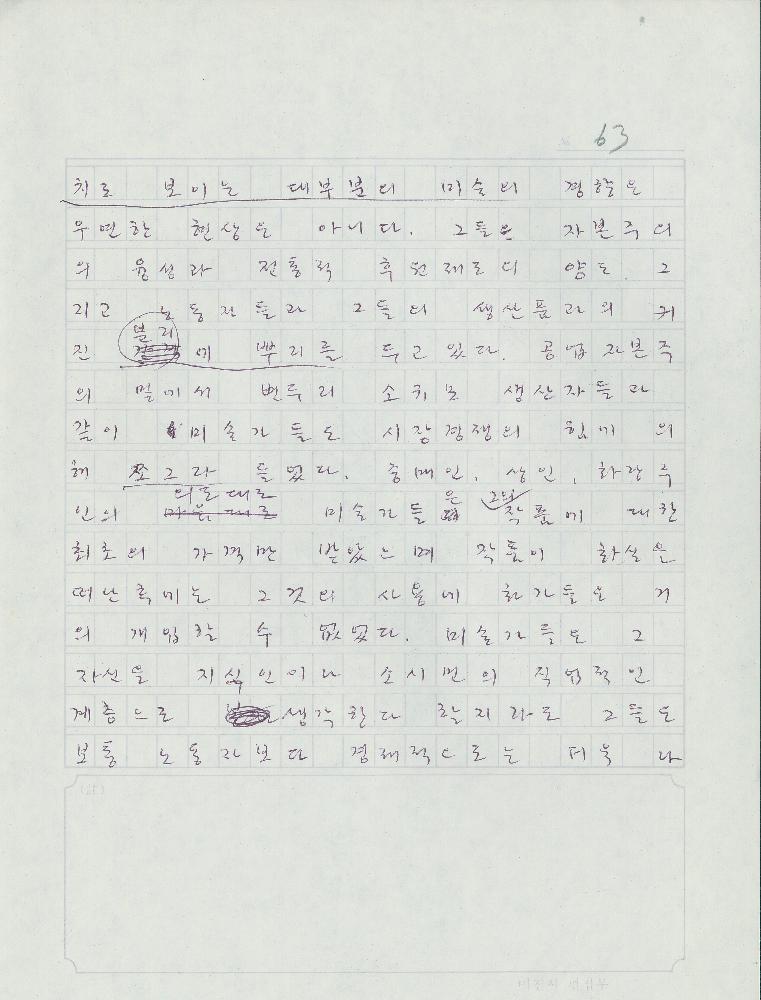 63
치로 보이는 대부분의 미술의 경향은
우연한 현상은 아니다. 그들은 자본주의
의 융성과 전통적 후원제도의 양도. 그
리고 노동자들과 그들의 생산품과의
분리
진 에 뿌리를 두고 있다. 공업자본주
의 멀미서 변두리 소규모 생산자들과
같이 미술가들도 시장경쟁의 힘에 의
해 쪼그라 들었다. 중매인, 상인, 화랑주
의도대로 은 그의
인의 마음대로 미술가들 작품에 대한
최초의 가격만 받았으며 작품이 화실을
떠난 후에는 그것의 사용에 화가들은 거
의 개입할 수 없었다. 미술가들은 그
자신을 지식인이나 소시민의 직업적인
계층으로 생각한다 할지라도 그들은
보통 노동자보다 경제적으로는 더욱 나